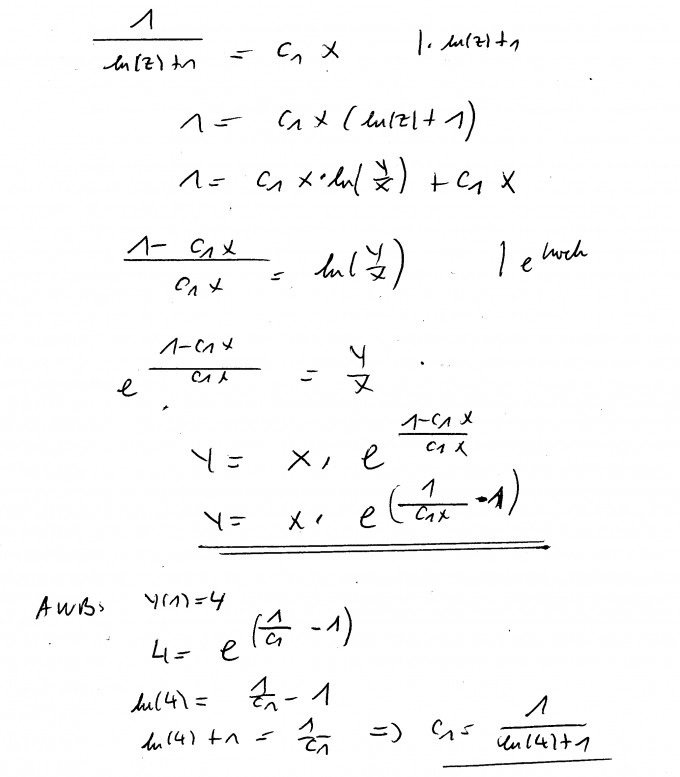 1/(ln(z)+1) = C₁ x   |· ln(z)+1
1 = C₁ x (ln(z)+1)
1 = C₁ x · ln(y/x) + C₁ x
(1 - C₁x)/(C₁x) = ln(y/x)   | e^hoch
e^((1-C₁x)/(C₁x)) = y/x
y = x · e^((1-C₁x)/(C₁x))
y = x · e^(1/(C₁x) - 1)
AWB: y(1)=4
4 = e^(1/C₁ - 1)
ln(4) = 1/C₁ - 1
ln(4) + 1 = 1/C₁ => C₁ = 1/(ln(4)+1)